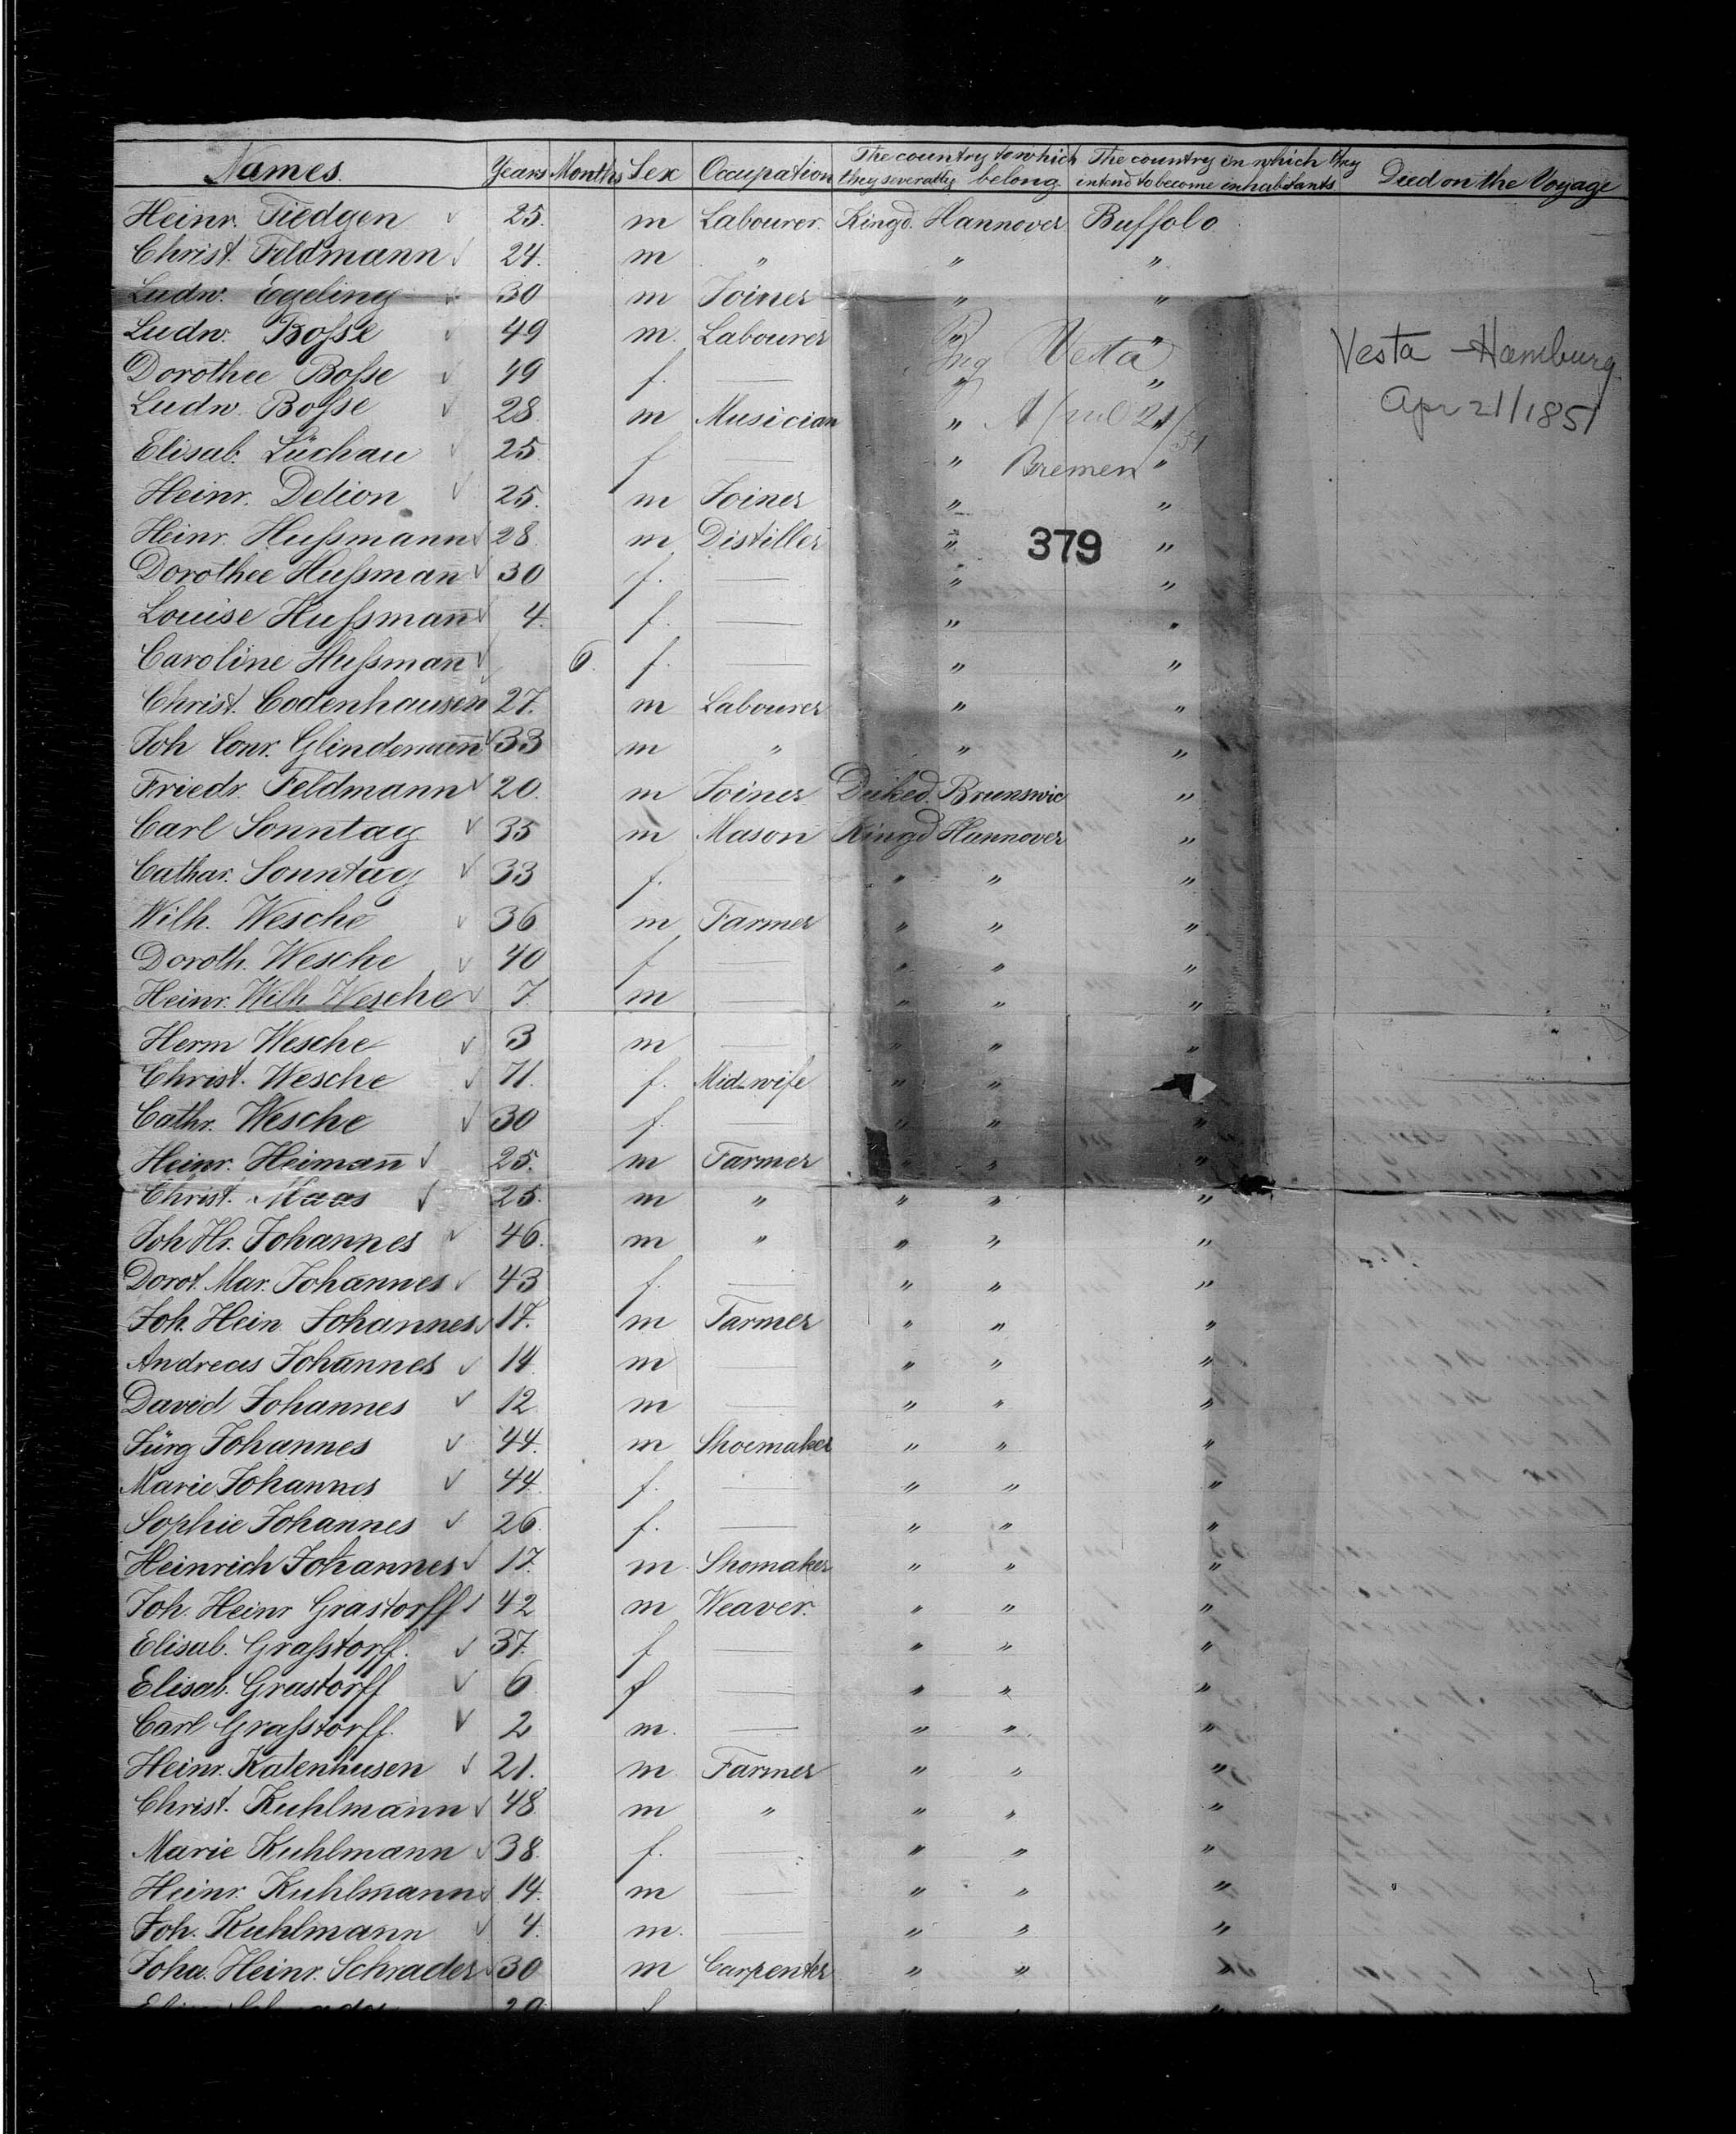 Names. Years Months Sex Occupation The country to which they severally belong. The country in which they intend to become inhabitants Died on the Voyage
Heinr. Tiedgen ✓ 25. m Labourer. Kingd. Hannover Buffolo
Christ. Feldmann ✓ 24. m " " "
Ludw. Egeling 30 m Joiner " "
Ludw. Bosse ✓ 49 m. Labourer " "
Dorothee Bosse ✓ 49 f. — " "
Ludw. Bosse ✓ 28 m Musician " "
Elisab. Lüchau ✓ 25 f — " "
Heinr. Detion ✓ 25. m Joiner " "
Heinr. Hussmann ✓ 28. m Distiller " "
Dorothee Hussman̄ ✓ 30 f. — " "
Louise Hussman̄ ✓ 4. f. — " "
Caroline Hussman̄ ✓ 6. f. — " "
Christ. Codenhausen 27. m Labourer " "
Joh Conr. Glindeman̄ ✓ 33 m " " "
Friedr. Feldmann ✓ 20. m Joiner Duked. Brunswic "
Carl Sonntag ✓ 35 m Mason Kingd Hannover "
Cathar. Sonntag ✓ 33 f. — " " "
Wilh. Wesche ✓ 36 m Farmer " " "
Doroth. Wesche ✓ 40 f — " " "
Heinr. Wilh. Wesche ✓ 7. m — " " "
Herm Wesche ✓ 3 m — " " "
Christ. Wesche ✓ 71. f. Mid-wife " "
Cathr. Wesche ✓ 30 f. — " " "
Heinr. Heiman̄ ✓ 25. m Farmer " " "
Christ. Maas ✓ 25. m " " " "
Joh Hr. Johannes ✓ 46. m " " " "
Dorot. Mar. Johannes ✓ 43 f. — " " "
Joh. Hein. Johannes ✓ 17. m Farmer " " "
Andreas Johannes ✓ 14 m — " " "
David Johannes ✓ 12 m — " " "
Jürg Johannes ✓ 44. m Shoemaker " " "
Marie Johannes ✓ 44. f. — " " "
Sophie Johannes ✓ 26. f. — " " "
Heinrich Johannes ✓ 17. m. Shomaker " " "
Joh. Heinr Grastorff ✓ 42 m Weaver. " " "
Elisab. Grasstorff. ✓ 37. f — " " "
Elisab. Grastorff ✓ 6 f — " " "
Carl Grasstorff. ✓ 2 m. — " " "
Heinr. Katenhusen ✓ 21. m. Farmer " " "
Christ. Kuhlmann ✓ 48 m " " " "
Marie Kuhlmann ✓ 38. f. — " " "
Heinr. Kuhlmann ✓ 14. m — " " "
Joh. Kuhlmann ✓ 4. m. — " " "
Joha. Heinr. Schrader 30 m Carpenter " " "
Vesta
April 21/51
Bremen
379
Vesta - Hamburg
Apr 21/1851